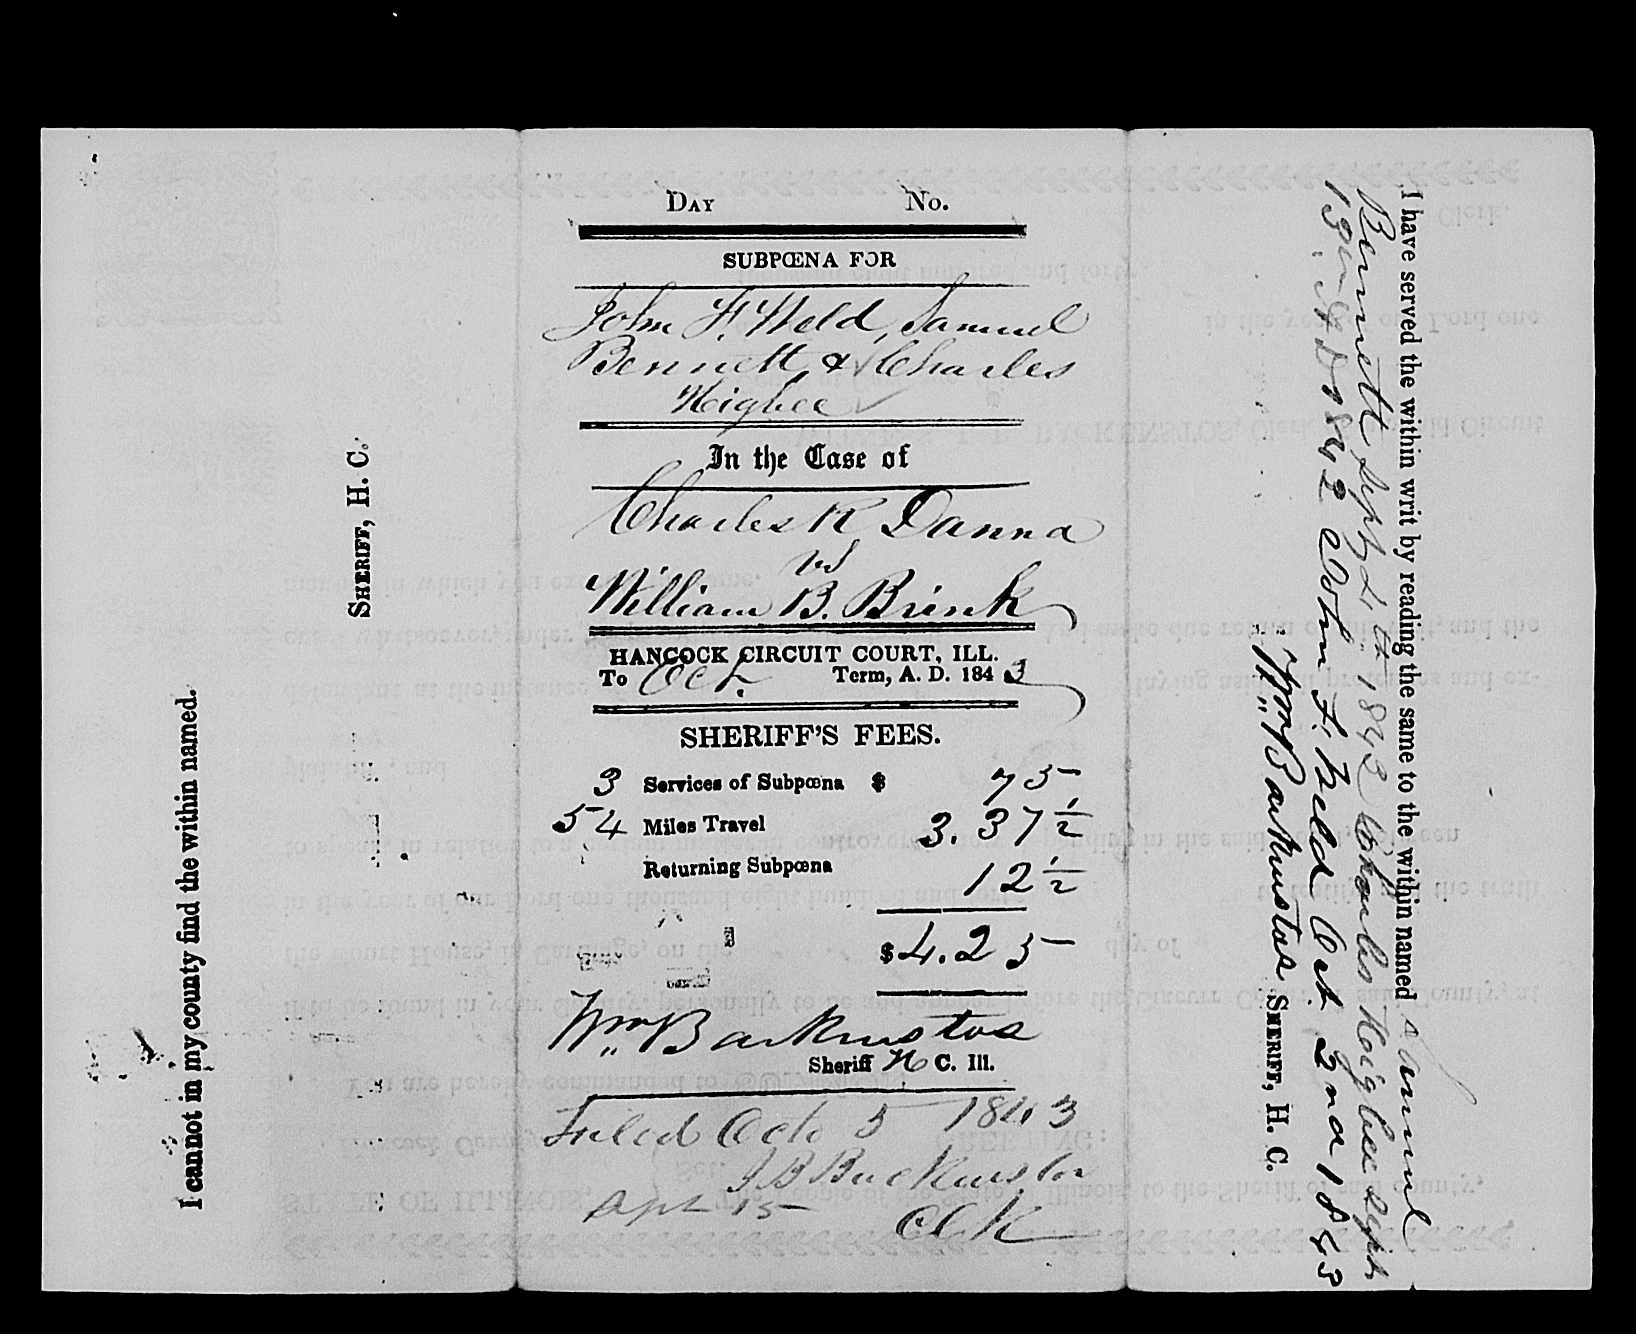 I cannot in my county find the within named.
SHERIFF, H. C.
DAY No.
SUBPŒNA FOR
John F. Weld, Samuel
Bennett, & Charles
Higbee
In the Case of
Charles R Danna
vs
William B. Brink
HANCOCK CIRCUIT COURT, ILL.
To Oct. Term, A. D. 1843
SHERIFF'S FEES.
3 Services of Subpœna $ 75
54 Miles Travel 3.37 1/2
Returning Subpœna 12 1/2
$4.25
Wm Backenstos
Sheriff H C. Ill.
Filed Octo 5 1843
J B Backenstos
Clk
I have served the within writ by reading the same to the within named Samuel
Bennett Sept 4th 1843 Charles Higbee Sept
13th A D 1842 John F. Weld Oct 2nd 1843
Wm Backenstos SHERIFF, H. C.